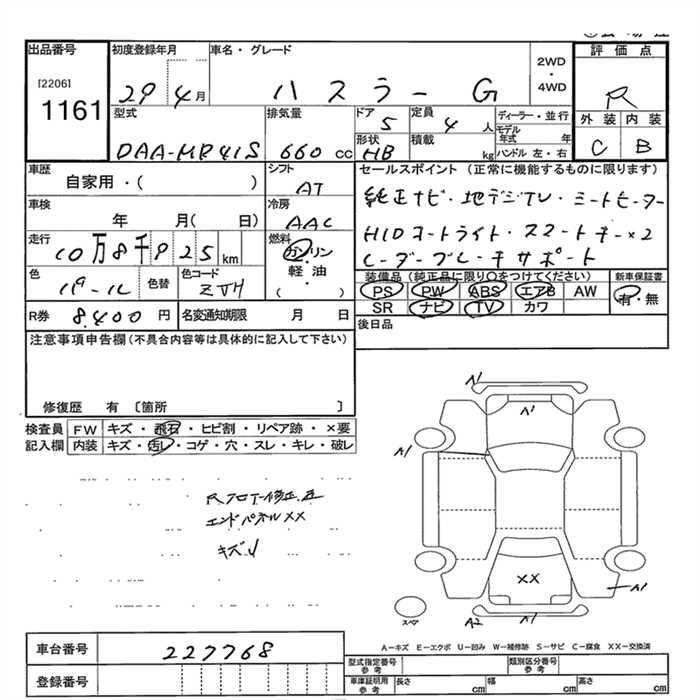 出品番号
[2206]
1161
初度登録年月
29 4月
車名・グレード
ハスラー G
2WD
・
4WD
評価点
R
外装 内装
C B
型式
DAA-MR41S
排気量
660 cc
ドア
5
形状
HB
定員
4 人
積載
kg
ディーラー・並行
モデル
年式 年
ハンドル 左・右
車歴
自家用・( )
シフト
AT
車検
年 月( 日)
冷房
AAC
走行
10万8千925 km
燃料
ガソリン
軽・油
( )
色
パール 色替
色コード
ZVH
R券 8,400 円
名変通知期限 月 日
セールスポイント (正常に機能するものに限ります)
純正ナビ・地デジTV・シートヒーター
HIDオートライト・スマートキー×2
レーダーブレーキサポート
装備品(純正品に限り○をつけてください)
PS PW ABS エアB AW
SR ナビ TV カワ
新車保証書
有・無
後日品
注意事項申告欄(不具合内容等は具体的に記入して下さい)
修復歴 有 〔箇所 〕
検査員 FW キズ・飛石・ヒビ割・リペア跡・×要
記入欄 内装 キズ・汚レ・コゲ・穴・スレ・キレ・破レ
Rフロアー修正歪
エンドパネルXX
キズU
A1
A1
A1
XX
A1
A2
A1
スペア
A-キズ E-エクボ U-凹み W-補修跡 S-サビ C-腐食 XX-交換済
車台番号 227768
登録番号
型式指定番号
参考
類別区分番号
参考
車庫証明用
参考
長さ cm 幅 cm 高さ cm